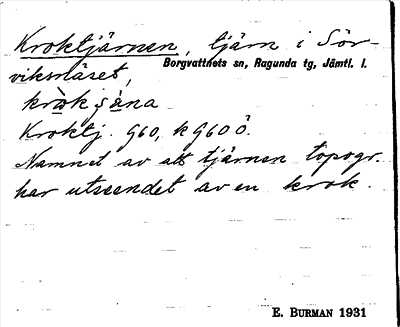 Kroktjärnen, tjärn i Sör-
viksnäset, Borgvattnets sn, Ragunda tg, Jämtl. l.
Kroktj. G60, k G60 Ö.
Namnet av att tjärnen topogr.
har utseendet av en krok.
E. BURMAN 1931